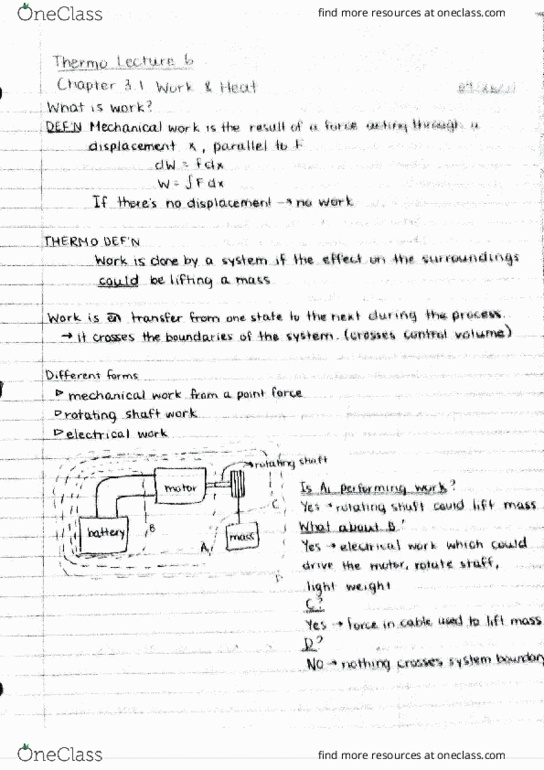 OneClass
find more resources at oneclass.com
Thermo Lecture 6
Chapter 3.1 Work & Heat
What is work?
DEF'N Mechanical work is the result of a force acting through a
displacement x, parallel to F
dW = Fdx
W = ∫Fdx
If there's no displacement → no work
THERMO DEF'N
Work is done by a system if the effect on the surroundings
could be lifting a mass
Work is transfer from one state to the next during the process.
→ it crosses the boundaries of the system. (crosses control volume)
Different forms
▷ mechanical work from a point force
▷ rotating shaft work
▷ electrical work
rotating shaft
motor
C
battery
B
A
mass
Is A performing work?
Yes → rotating shaft could lift mass
What about B?
Yes → electrical work which could
drive the motor, rotate staff,
light weight
C?
Yes → force in cable used to lift mass
D?
No → nothing crosses system boundary
OneClass
find more resources at oneclass.com